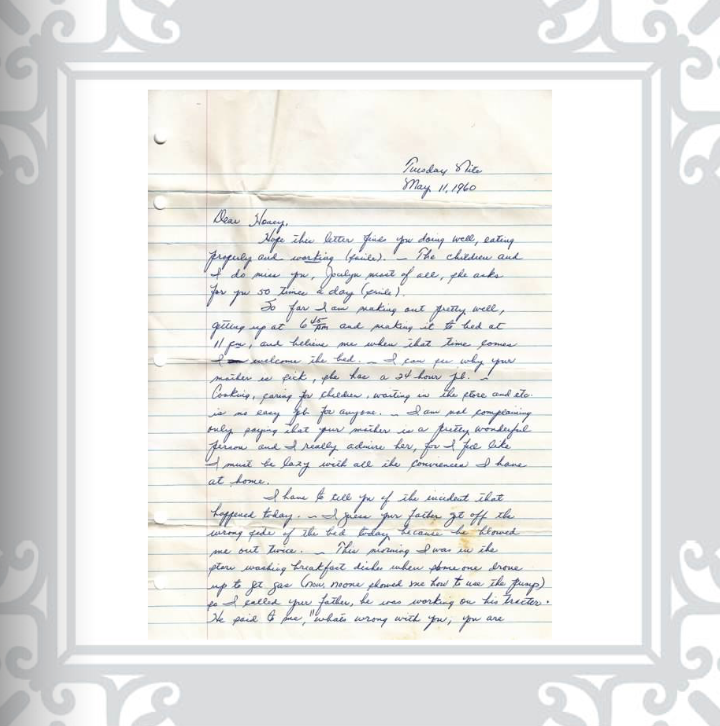 Tuesday Nite
May 11, 1960
Dear Honey,
Hope this letter finds you doing well, eating
properly and working (smile). — The children and
I do miss you, most of all, she asks
for you 50 times a day (smile).
So far I am making out pretty well,
getting up at 6 45 and making it to bed at
11 pm, and believe me when that time comes
I welcome the bed. — I can see why your
mother is sick, she has a 24 hour job. —
Cooking, caring for children, waiting in the store and etc.
is no easy job for anyone. — I am not complaining
only saying that your mother is a pretty wonderful
person and I really admire her, for I feel like
I must be lazy with all the conviences I have
at home.
I have to tell you of the incident that
happened today. — I guess your father got off the
wrong side of the bed today because he blowed
me out twice. — This morning I was in the
store washing breakfast dishes when someone drove
up to get gas (mind, noone showed me how to use the pump)
so I called your father, he was working on his tractor.
He said to me, "whats wrong with you, you are